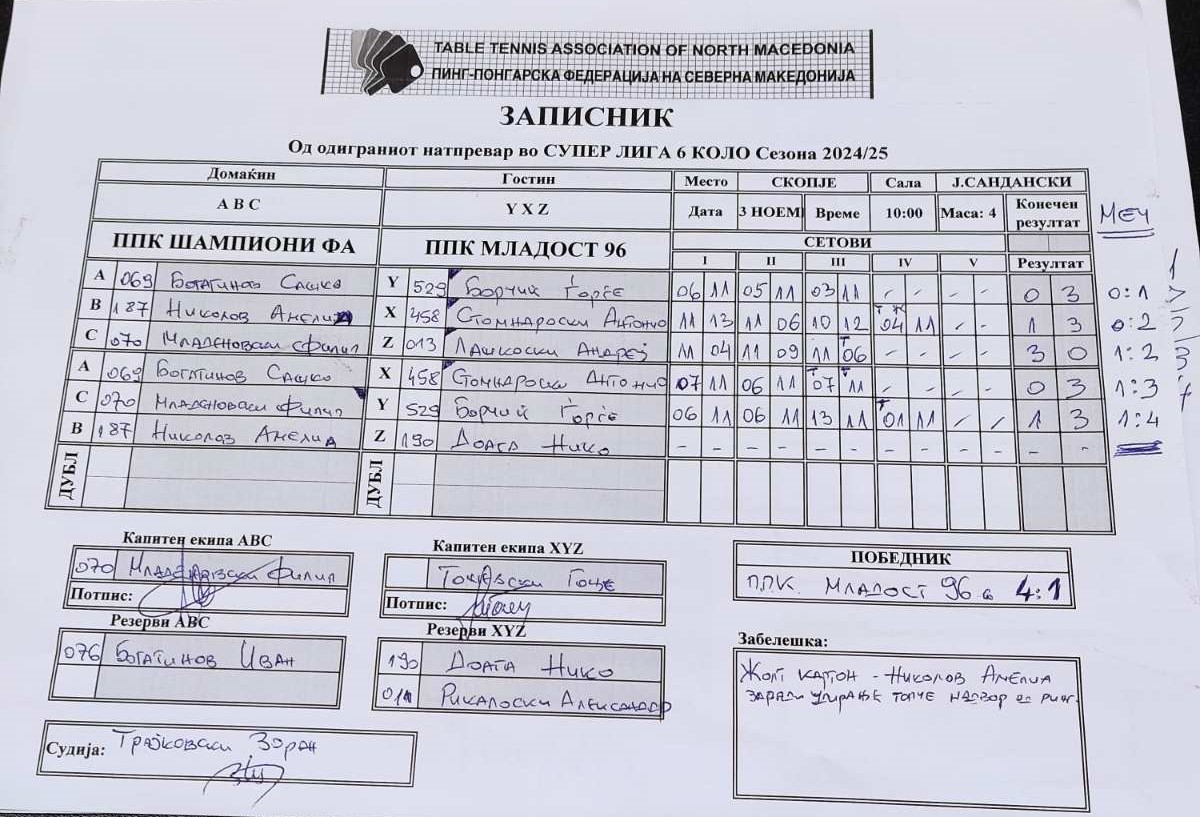 TABLE TENNIS ASSOCIATION OF NORTH MACEDONIA
ПИНГ-ПОНГАРСКА ФЕДЕРАЦИЈА НА СЕВЕРНА МАКЕДОНИЈА
ЗАПИСНИК
Од одиграниот натпревар во СУПЕР ЛИГА 6 КОЛО Сезона 2024/25
Домаќин Гостин Место СКОПЈЕ Сала Ј.САНДАНСКИ
А В С Y X Z Дата 3 НОЕМ Време 10:00 Маса: 4 Конечен резултат МЕЧ
ППК ШАМПИОНИ ФА ППК МЛАДОСТ 96 СЕТОВИ
I II III IV V Резултат
А 069 Богатинов Сашко Y 529 Борчиќ Ѓорѓе 06 11 05 11 03 11 - - - - 0 3 0:1
В 187 Николов Анелиа X 458 Стомнароски Антонио 11 13 11 06 10 12 04 11 - - 1 3 0:2
С 070 Младеновски Филип Z 013 Лашкоски Андреј 11 04 11 09 11 06 - - - - 3 0 1:2
А 069 Богатинов Сашко X 458 Стомнароски Антонио 07 11 06 11 07 11 - - - - 0 3 1:3
С 070 Младеновски Филип Y 529 Борчиќ Ѓорѓе 06 11 06 11 13 11 01 11 / / 1 3 1:4
В 187 Николов Анелиа Z 190 Доага Нико - - - - - - - - - - - -
ДУБЛ ДУБЛ
Капитен екипа АВС Капитен екипа XYZ ПОБЕДНИК
070 Младеновски Филип Гоце П.П.К. Младост 96 4:1
Потпис: Потпис:
Резерви АВС Резерви XYZ Забелешка:
076 Богатинов Иван 190 Доага Нико Жолт картон - Николов Анелиа
Рикалоски Александар заради топче надвор од ринг.
Судија: Трајковски Зоран